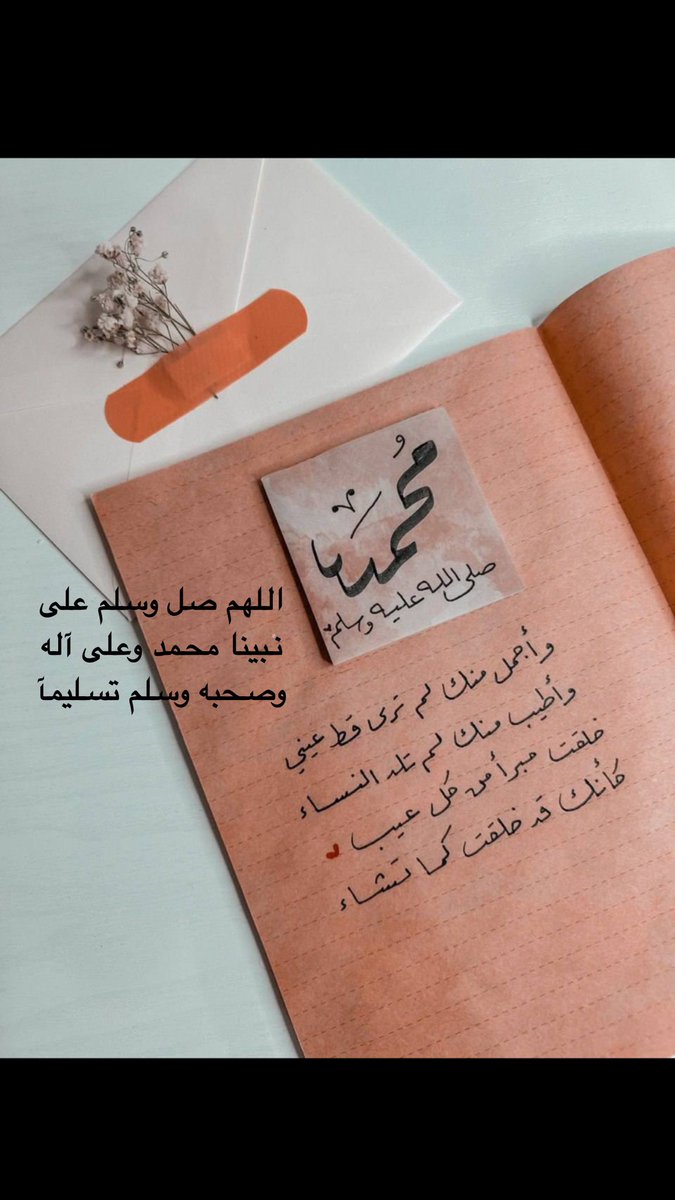 محمد
صلى الله عليه وسلم
وأجمل منك لم ترى قط عيني
وأطيب منك لم تلد النساء
خلقت مبرأ من كل عيب
كأنك قد خلقت كما تشاء
اللهم صل وسلم على
نبينا محمد وعلى آله
وصحبه وسلم تسليمآ